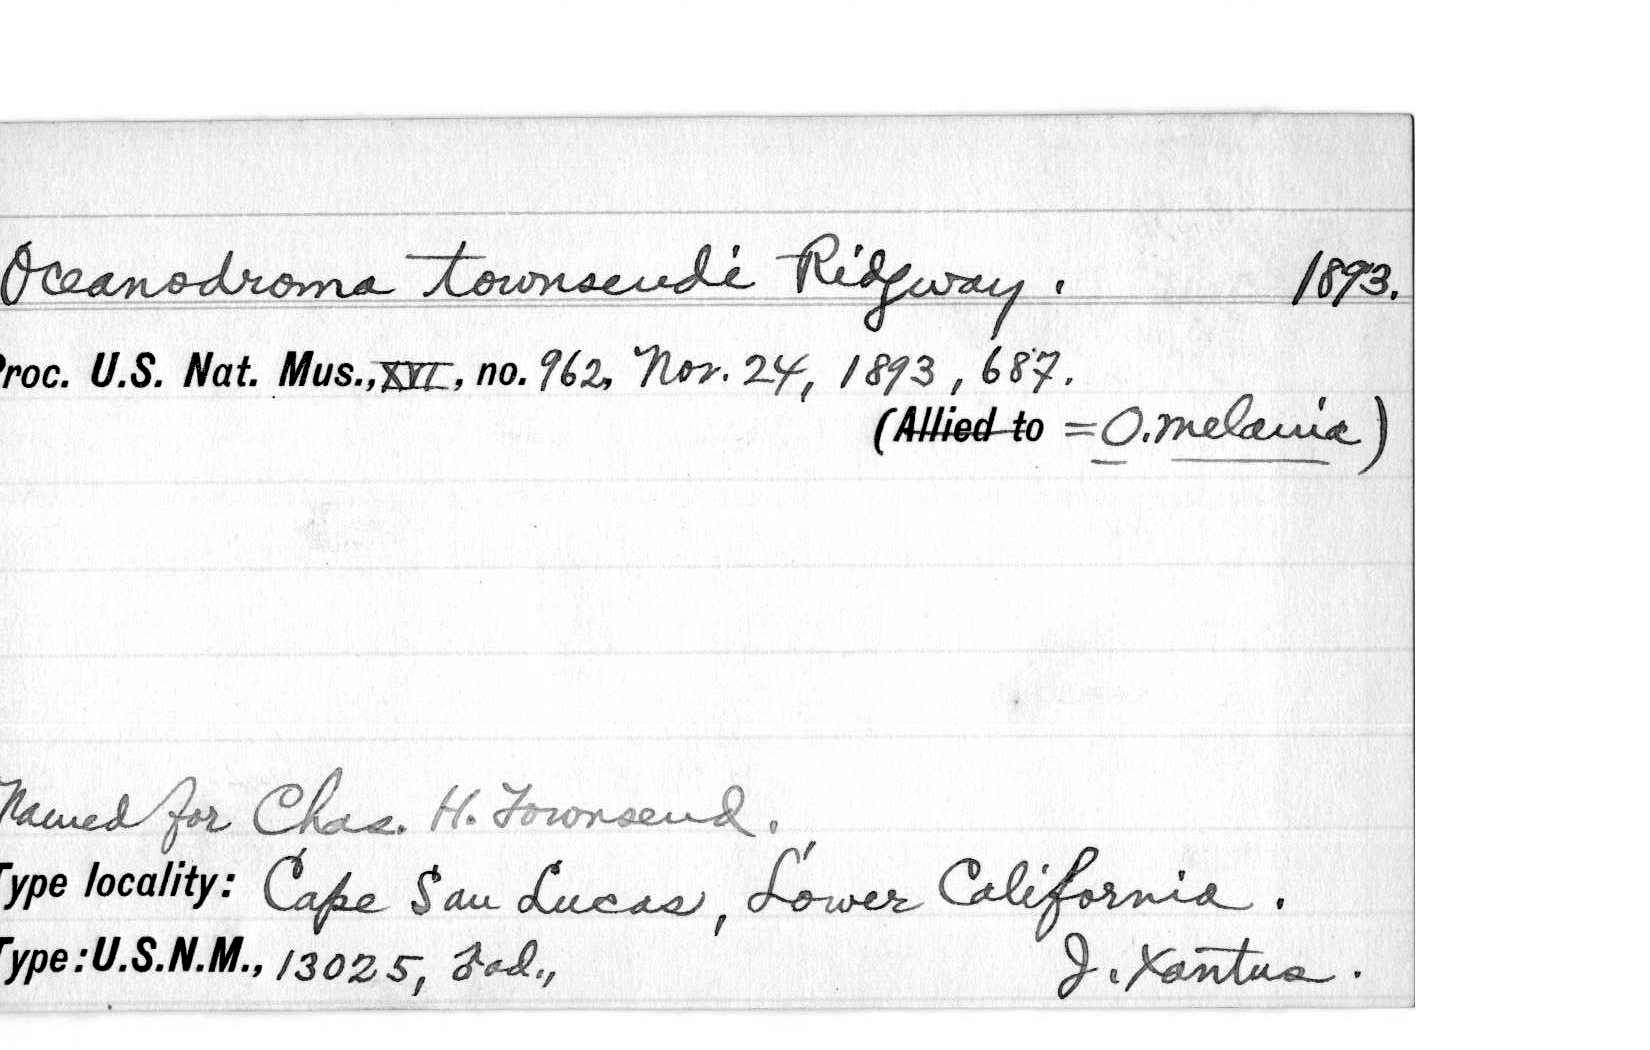 Oceanodroma townsendi Ridgway. 1893.
Proc. U.S. Nat. Mus., XVI, no. 962, Nov. 24, 1893, 687.
(Allied to = O. melania)
Named for Chas. H. Townsend.
Type locality: Cape San Lucas, Lower California.
Type: U.S.N.M., 13025, ad., J. Xantus.